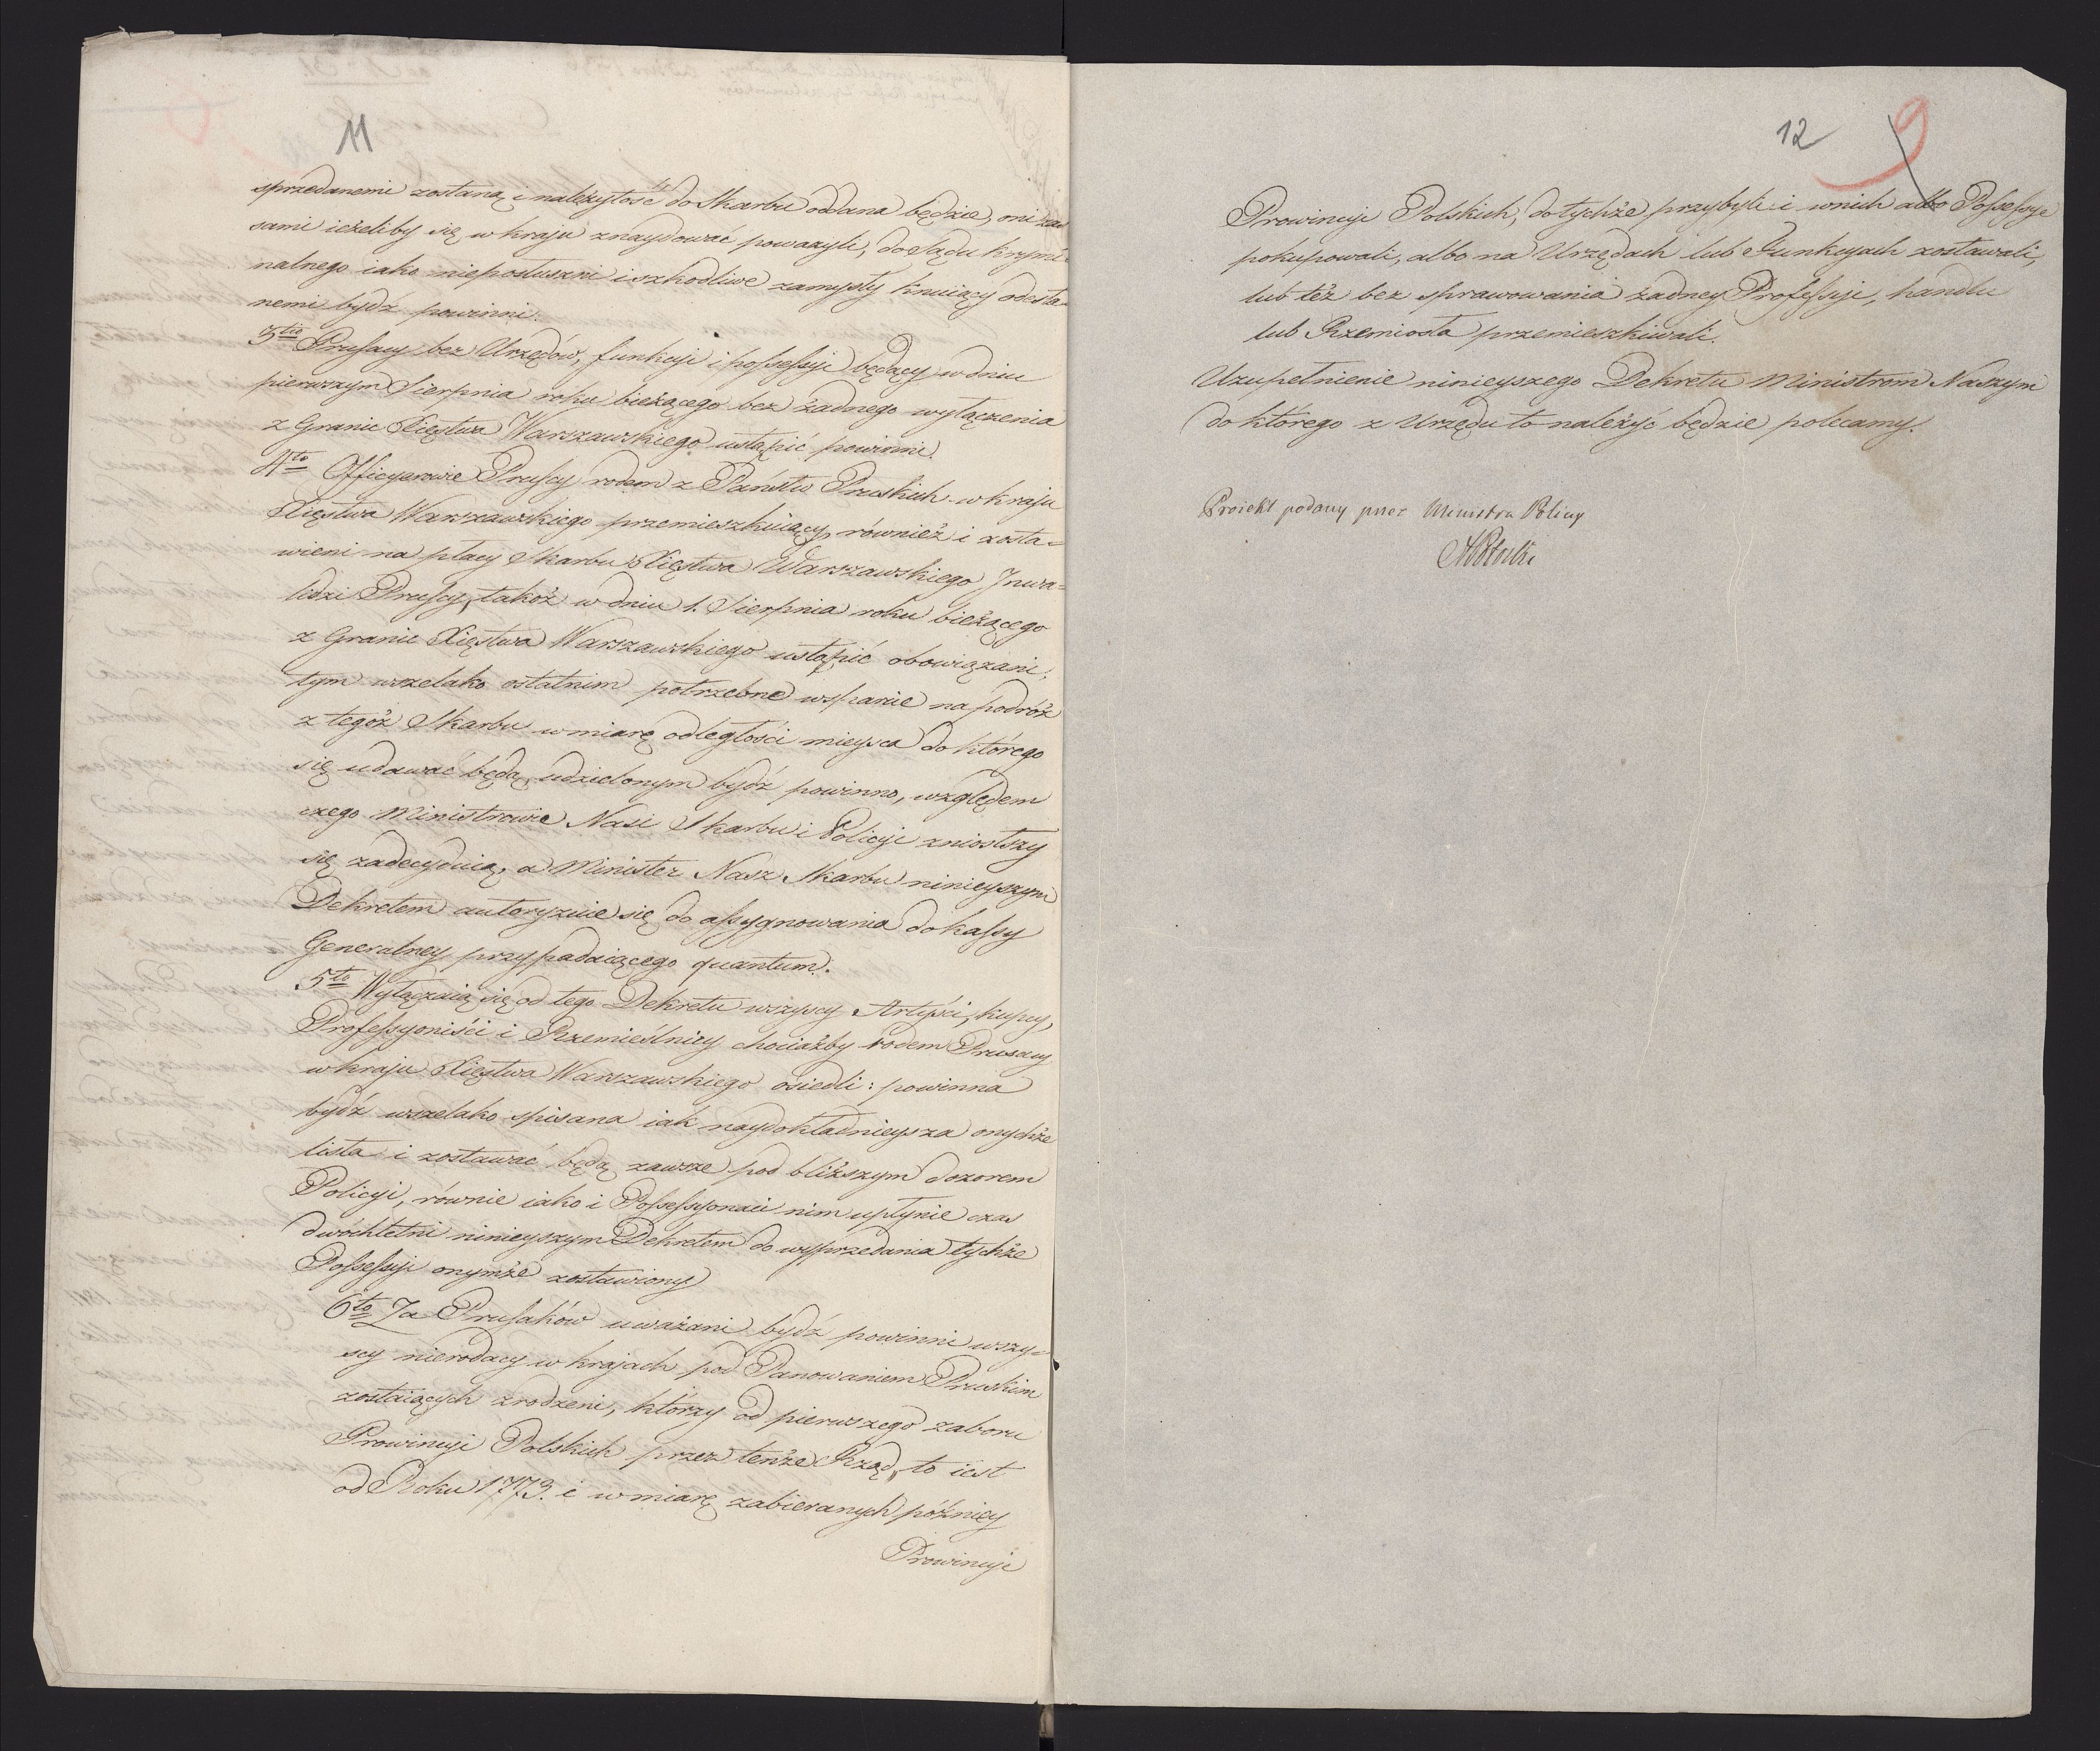 11
sprzedanemi zostaną i należytość do Skarbu oddana będzie, oni zas
sami ieżeliby się w kraju znaydować poważyli, do Sądu krymi=
nalnego iako nieposłuszni i szkodliwe zamysły knuiący odesła=
nemi bydź powinni.
3tio Prusacy bez Urzędów, funkcji i possessyi będący w dniu
pierwszym Sierpnia roku bieżącego bez żadnego wyłączenia
z Granic Xięstwa Warszawskiego ustąpić powinni.
4to Officyerowie Pruscy rodem z Państw Pruskich w kraju
Xięstwa Warszawskiego przemieszkuiący, również i zosta=
wieni na płacy Skarbu Xięstwa Warszawskiego Inwa=
lidzi Pruscy, takoż w dniu 1. Sierpnia roku bieżącego
z Granic Xięstwa Warszawskiego ustąpić obowiązani;
tym wszelako ostatnim potrzebne wsparcie na podróż
z tegoż Skarbu w miarę odległości mieysca do którego
się udawać będą, udzielonym bydź powinno, względem
czego Ministrowie Nasi Skarbu i Policyi zniosłszy
się zadecyduią, a Minister Nasz Skarbu ninieyszym
Dekretem autoryzuie się do assygnowania do kassy
Generalney przypadaiącego quantum.
5to Wyłączaią się od tego Dekretu wszyscy Artyści, kupcy,
Professyoniści i Rzemieślnicy chociażby rodem Prusacy
w kraju Xięstwa Warszawskiego osiedli: powinna
bydź wszelako spisana iak naydokładnieysza onychże
lista i zostawać będą zawsze pod bliższym dozorem
Policyi, równie iako i Possessyonaci nim upłynie czas
dwóchletni ninieyszym Dekretem do wyprzedania tychże
Possessyi onymże zostawiony
6to Za Prusaków uważani bydź powinni wszy=
scy nierodacy w krajach pod Panowaniem Pruskim
zostaiących zrodzeni, którzy od pierwszego zaboru
Prowincyi Polskich przez tenże Rząd, to iest
od Roku 1773. i w miarę zabieranych pózniey
Prowincyi
12 9
Prowincyi Polskich, do tychże przybyli i w nich albo Possessye
pokupowali, albo na Urzędach lub Funkcyach zostawali,
lub też bez sprawowania żadney Professyi, handlu
lub Rzemiosła przemieszkiwali.
Uzupełnienie ninieyszego Dekretu Ministrom Naszym
do którego z Urzędu to należyć będzie polecamy.
Proiekt podany przez Ministra Policyi
APotocki